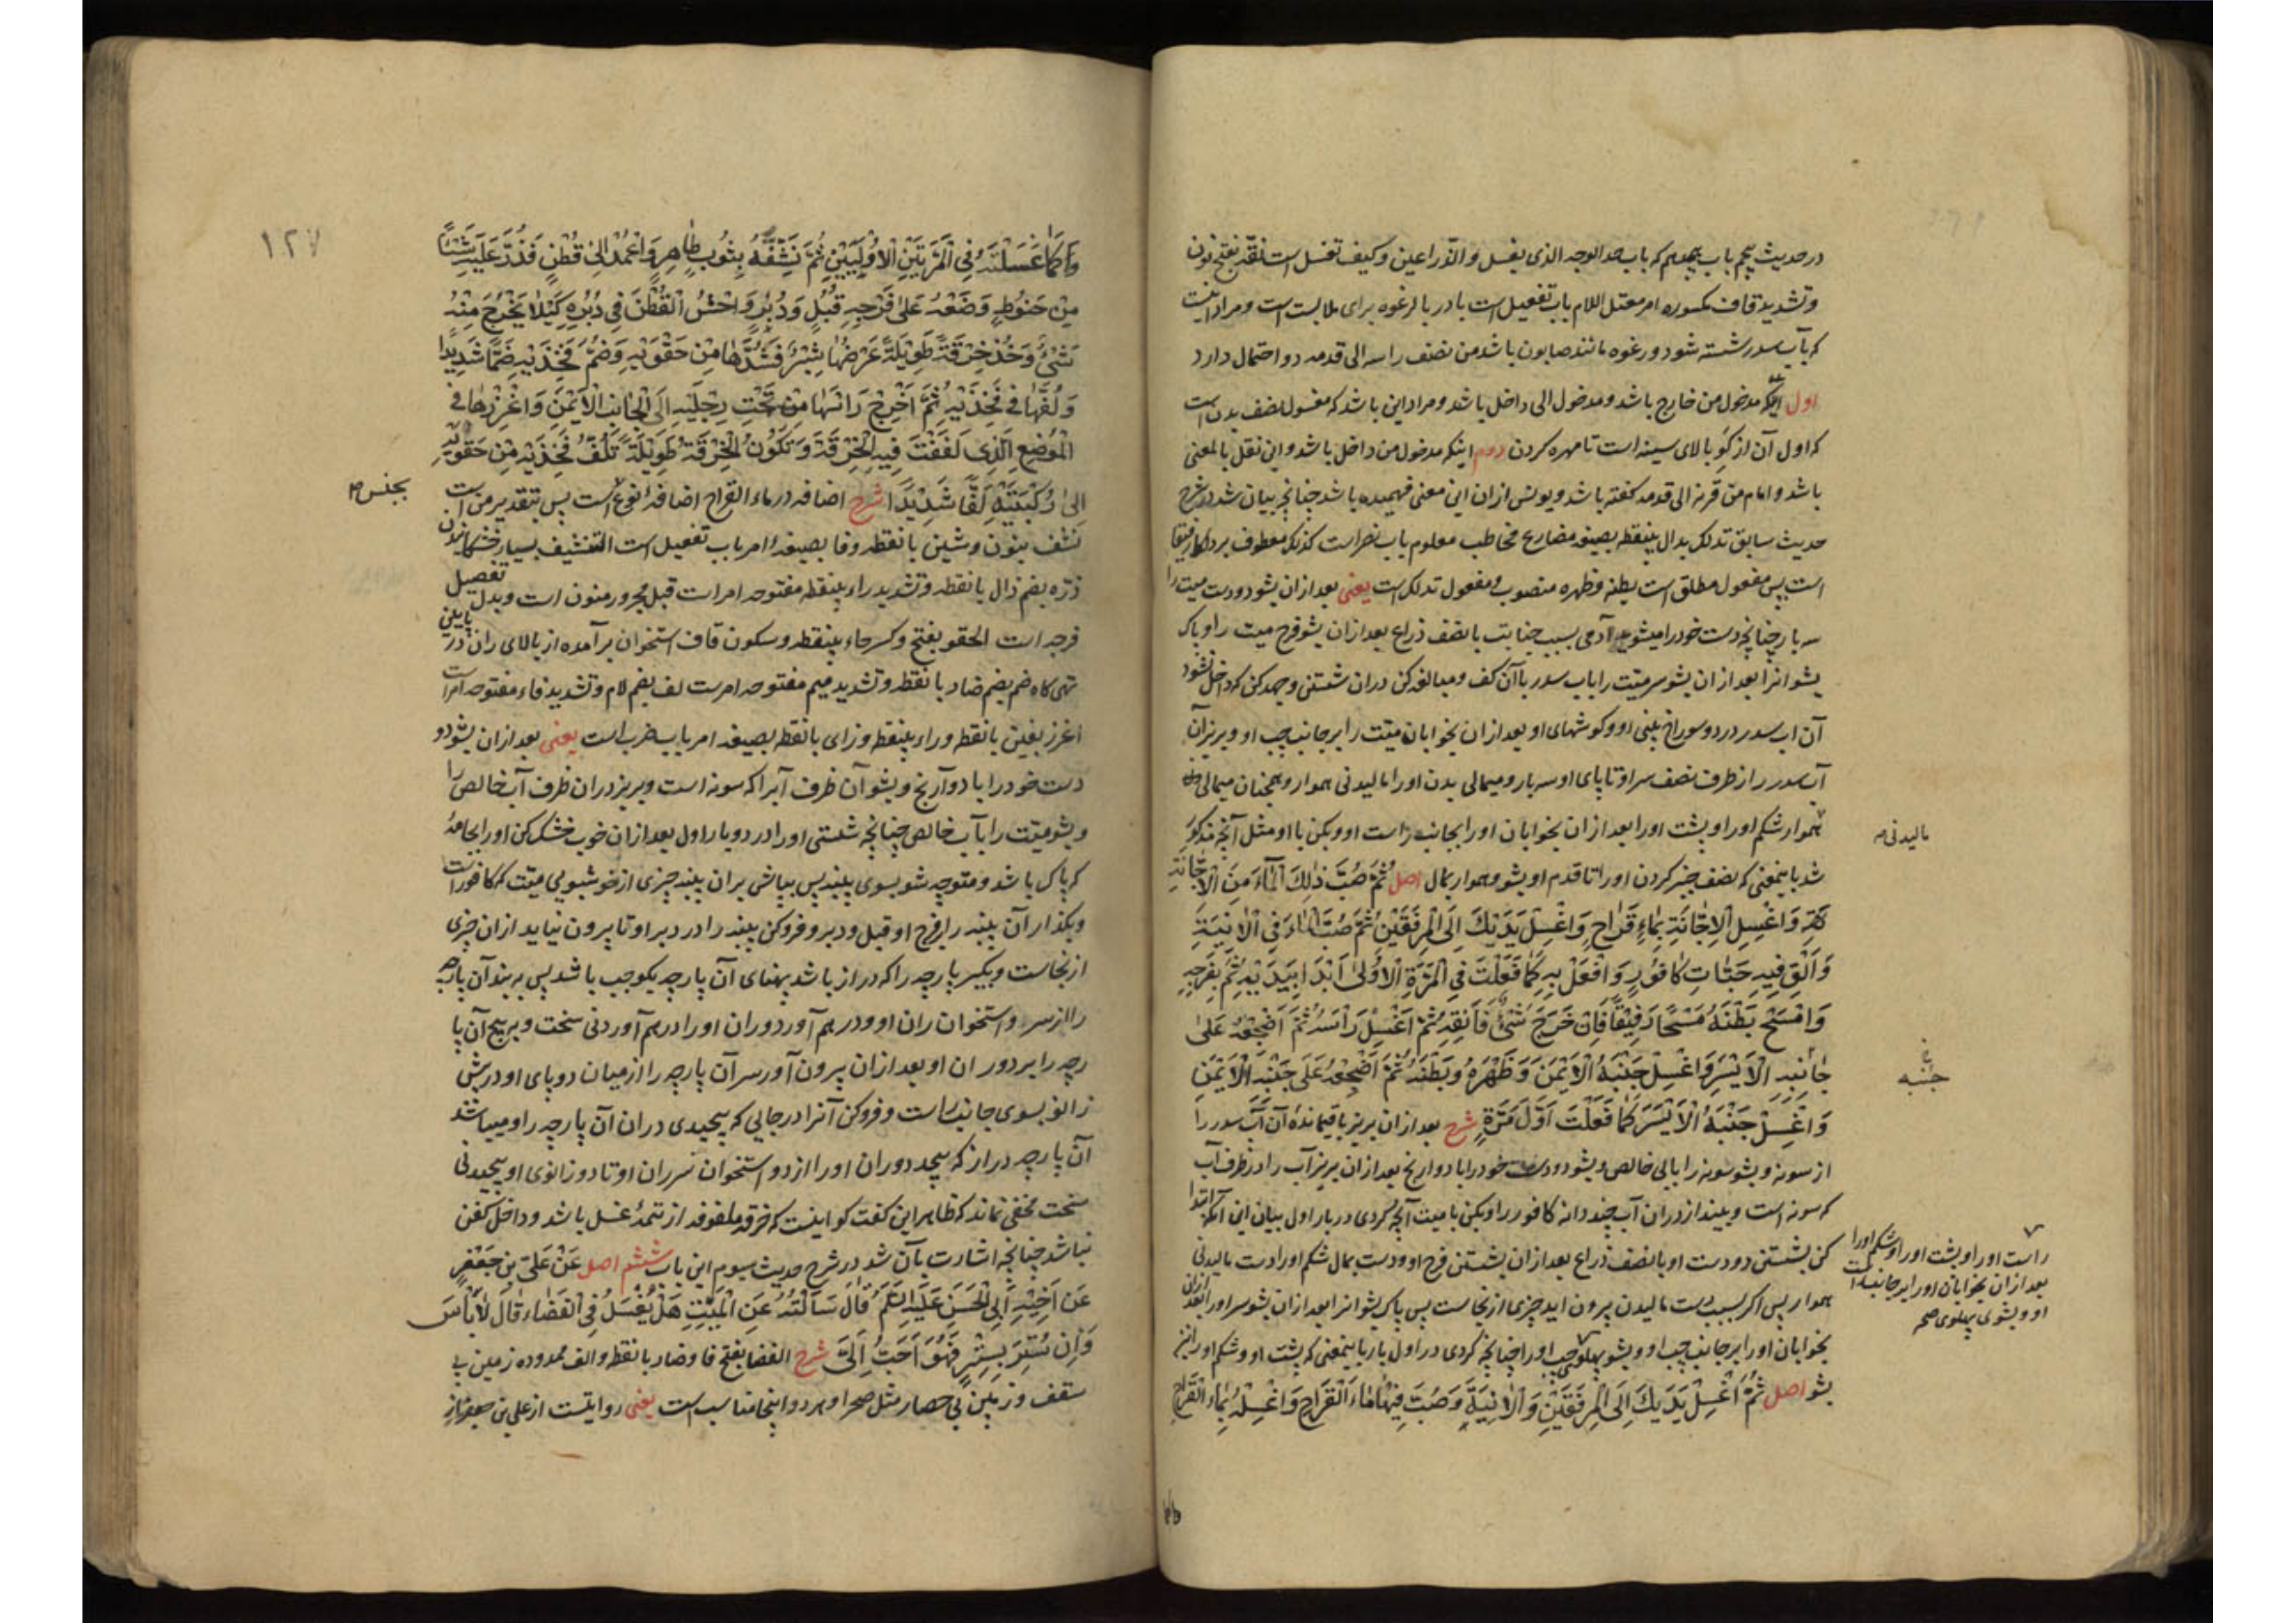 در حدیث پنجم باب هجدهم که باب حد الوجه الذی یغسل و الذراعین و کیف تغسل است نقه بفتح نون
و تشدید قاف مکسوره امر معتل اللام باب تفعیل است با در بالرغوه برای ملابست است و مراد اینست
که بآب سدر شسته شود و رغوه مانند صابون باشد من نصف راسه الی قدمه دو احتمال دارد
اول اینکه مدخول من خارج باشد و مدخول الی داخل باشد و مراد این باشد که مغسول نصف بدن است
که اول آن از گو بالای سینه است تا مهره کردن دوم اینکه مدخول من داخل باشد و این نقل بالمعنی
باشد و امام من قرنه الی قدمه کفته باشد و یونس ازان این معنی فهمیده باشد چنانچه بیان شد در شرح
حدیث سابق تدلک بدال بینقطه بصیغه مضارع مخاطب معلوم باب نصر است کذلک معطوف بر دلکا رفیقا
است پس مفعول مطلق است بطنه و ظهره منصوب و مفعول تدلک است یعنی بعد ازان بشو دو دست میت را
سه بار چنانچه دست خود را میشوید آدمی بسبب جنابت با نصف ذراع بعد ازان بشو فرج میت را و پاک
بشو انرا بعد ازان بشو سر میت را باب سدر با آن کف و مبالغه کن دران شستن و جهد کن که داخل نشود
آن اب سدر در دو سوراخ بینی او و کوشهای او بعد ازان بخوابان میت را بر جانب چپ او و بریز آن
آب سدر را از طرف نصف سر او تا پای او سه بار و میمالی بدن او را مالیدنی هموار و همچنان میمالی
هموار شکم او را و پشت او را بعد ازان بخوابان او را بجانب راست او و بکن با او مثل آنچه مذکور
شد باینمعنی که نصف جبر کردن او را تا قدم او بشو و هموار بمال اصل ثُمَّ صُبَّ ذٰلِكَ الْمَاءَ مِنَ الْاِجَّانَةِ
وَاغْسِلِ الْاِجَّانَةَ بِمَاءٍ قَرَاحٍ وَاغْسِلْ يَدَيْكَ اِلَى الْمِرْفَقَيْنِ ثُمَّ صُبَّ الْمَاءَ فِي الْاٰنِيَةِ
وَاَلْقِ فِيهِ حَبَّاتِ كَافُورٍ وَافْعَلْ بِهِ كَمَا فَعَلْتَ فِي الْمَرَّةِ الْاُولىٰ ابْدَاْ بِيَدَيْهِ ثُمَّ بِفَرْجِهِ
وَامْسَحْ بَطْنَهُ مَسْحًا رَفِيقًا فَاِنْ خَرَجَ شَيْءٌ فَاَنْقِهِ ثُمَّ اغْسِلْ رَأْسَهُ ثُمَّ اَضْجِعْهُ عَلىٰ
جَانِبِهِ الْاَيْسَرِ وَاغْسِلْ جَنْبَهُ الْاَيْمَنَ وَظَهْرَهُ وَبَطْنَهُ ثُمَّ اَضْجِعْهُ عَلىٰ جَنْبِهِ الْاَيْمَنِ
وَاغْسِلْ جَنْبَهُ الْاَيْسَرَ كَمَا فَعَلْتَ اَوَّلَ مَرَّةٍ شرح بعد ازان بریز باقیمانده آن آب سدر را
از سونه و بشو سونه را بابی خالص و بشو دو دست خود را با دو آرنج بعد ازان بریز آب را در ظرف آب
که سونه است و بینداز دران آب چند دانه کافور را و بکن با میت آنچه کردی در بار اول بیان این آنکه ابتدا
کن بشستن دو دست او با نصف ذراع بعد ازان بشستن فرج او و دست بمال شکم او را دست مالیدنی
هموار پس اکر بسبب دست مالیدن بیرون اید چیزی از نجاست پس پاک بشو انرا بعد ازان بشو سر او را بعد ازان
بخوابان او را بر جانب چپ او و بشو پهلوی چپ او را چنانچه کردی در اول بار باینمعنی که پشت او و شکم او را نیز
بشو اصل ثُمَّ اغْسِلْ يَدَيْكَ اِلَى الْمِرْفَقَيْنِ وَالْاٰنِيَةَ وَصُبَّ فِيهَا مَاءَ الْقَرَاحِ وَاغْسِلْهُ بِمَاءِ الْقَرَاحِ
مالیدنی
جنبه
راست او را و پشت او را و شکم او را
بعد ازان بخوابان او را بر جانب راست
او و بشوی پهلوی
۱۲۷
كَمَا غَسَلْتَهُ فِي الْمَرَّتَيْنِ الْاُولَيَيْنِ ثُمَّ نَشِّفْهُ بِثَوْبٍ طَاهِرٍ وَاعْمِدْ اِلىٰ قُطْنٍ فَذُرَّ عَلَيْهِ شَيْئًا
مِنْ حَنُوطٍ وَضَعْهُ عَلىٰ فَرْجِهِ قُبُلٍ وَدُبُرٍ وَاحْشُ الْقُطْنَ فِي دُبُرِهِ كَيْلَا يَخْرُجَ مِنْهُ
شَيْءٌ وَخُذْ خِرْقَةً طَوِيلَةً عَرْضُهَا شِبْرٌ فَشُدَّهَا مِنْ حَقْوَيْهِ وَضُمَّ فَخِذَيْهِ ضَمًّا شَدِيدًا
وَلُفَّهَا فِي فَخِذَيْهِ ثُمَّ اَخْرِجْ رَاْسَهَا مِنْ تَحْتِ رِجْلَيْهِ اِلَى الْجَانِبِ الْاَيْمَنِ وَاغْرِزْهَا فِي
الْمَوْضِعِ الَّذِي لَفَفْتَ فِيهِ الْخِرْقَةَ وَتَكُونُ الْخِرْقَةُ طَوِيلَةً تَلُفُّ فَخِذَيْهِ مِنْ حَقْوَيْهِ
اِلىٰ رُكْبَتَيْهِ لَفًّا شَدِيدًا شرح اضافه در ماء القراح اضافهٔ نوع است پس بتقدیر من است
نشف بنون و شین با نقطه و فا بصیغهٔ امر باب تفعیل است التنشیف بسیار خشکانیدن
ذره بضم ذال با نقطه و تشدید راء بینقطه مفتوحه امر است قبل مجرور منون است و بدل تفصیل
فرجه است الحقو بفتح و کسر حاء بینقطه و سکون قاف استخوان بر آمده از بالای ران در پایین
تهی کاه ضم بضم ضاد با نقطه و تشدید میم مفتوحه امرست لف بضم لام و تشدید فاء مفتوحه امر است
اغرز بغین با نقطه و راء بینقطه و زای با نقطه بصیغه امر باب ضرب است یعنی بعد ازان بشو دو
دست خود را با دو آرنج و بشو آن ظرف آبرا که سونه است و بریز دران ظرف آب خالص را
و بشو میت را بآب خالص چنانچه شستی او را در دو بار اول بعد ازان خوب خشک کن او را بجامهٔ
که پاک باشد و متوجه شو بسوی پنبه پس بپاش بران پنبه چیزی از خوشبویی میت که کافور است
و بکذار آن پنبه را بر فرج او قبل و دبر و فروکن پنبه را در دبر او تا بیرون نیاید ازان چیزی
از نجاست و بگیر پارچه را که دراز باشد پهنای آن پارچه یکوجب باشد پس ببند آن پارچه
را از سر و استخوان ران او و در هم آور دو ران او را در هم آوردنی سخت و بپیچ آن پا
رچه را بر دو ران او بعد ازان بیرون آور سر آن پارچه را از میان دو پای او در پیش
زانو بسوی جانب راست و فروکن آنرا در جایی که پیچیدی دران آن پارچه را و میباشد
آن پارچه دراز که پیچد دو ران او را از دو استخوان سر ران او تا دو زانوی او پیچیدنی
سخت مخفی نماند که ظاهر این کفت کو اینست که خرقه ملفوفه از تتمهٔ غسل باشد و داخل کفن
نباشد چنانچه اشارت بآن شد در شرح حدیث سیوم این باب ششم اصل عَنْ عَلِيِّ بْنِ جَعْفَرٍ
عَنْ اَخِيْهِ اَبِي الْحَسَنِ عَلَيْهِ السَّلَمُ قَالَ سَاَلْتُهُ عَنِ الْمَيِّتِ هَلْ يُغْسَلُ فِي الْفَضَاءِ قَالَ لَا بَأْسَ
وَاِنْ سُتِرَ بِسِتْرٍ فَهُوَ اَحَبُّ اِلَيَّ شرح الفضا بفتح فا و ضاد با نقطه و الف ممدوده زمین بی
سقف و زمین بی حصار مثل صحرا و هر دو اینجا مناسب است یعنی روایتست از علی بن جعفر از
بجنس